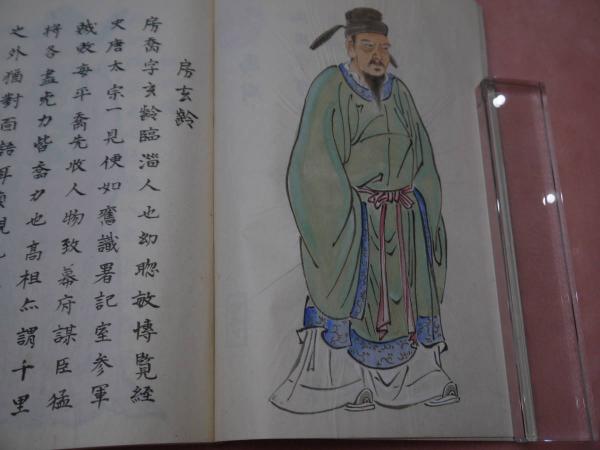 房玄齡
房喬字玄齡臨淄人也幼聰敏博覽經
史唐太宗一見便如舊識署記室參軍
賊敗每平喬先收人物致幕府謀臣猛
將各盡死力皆喬力也高祖亦謂千里
之外猶對面語耳